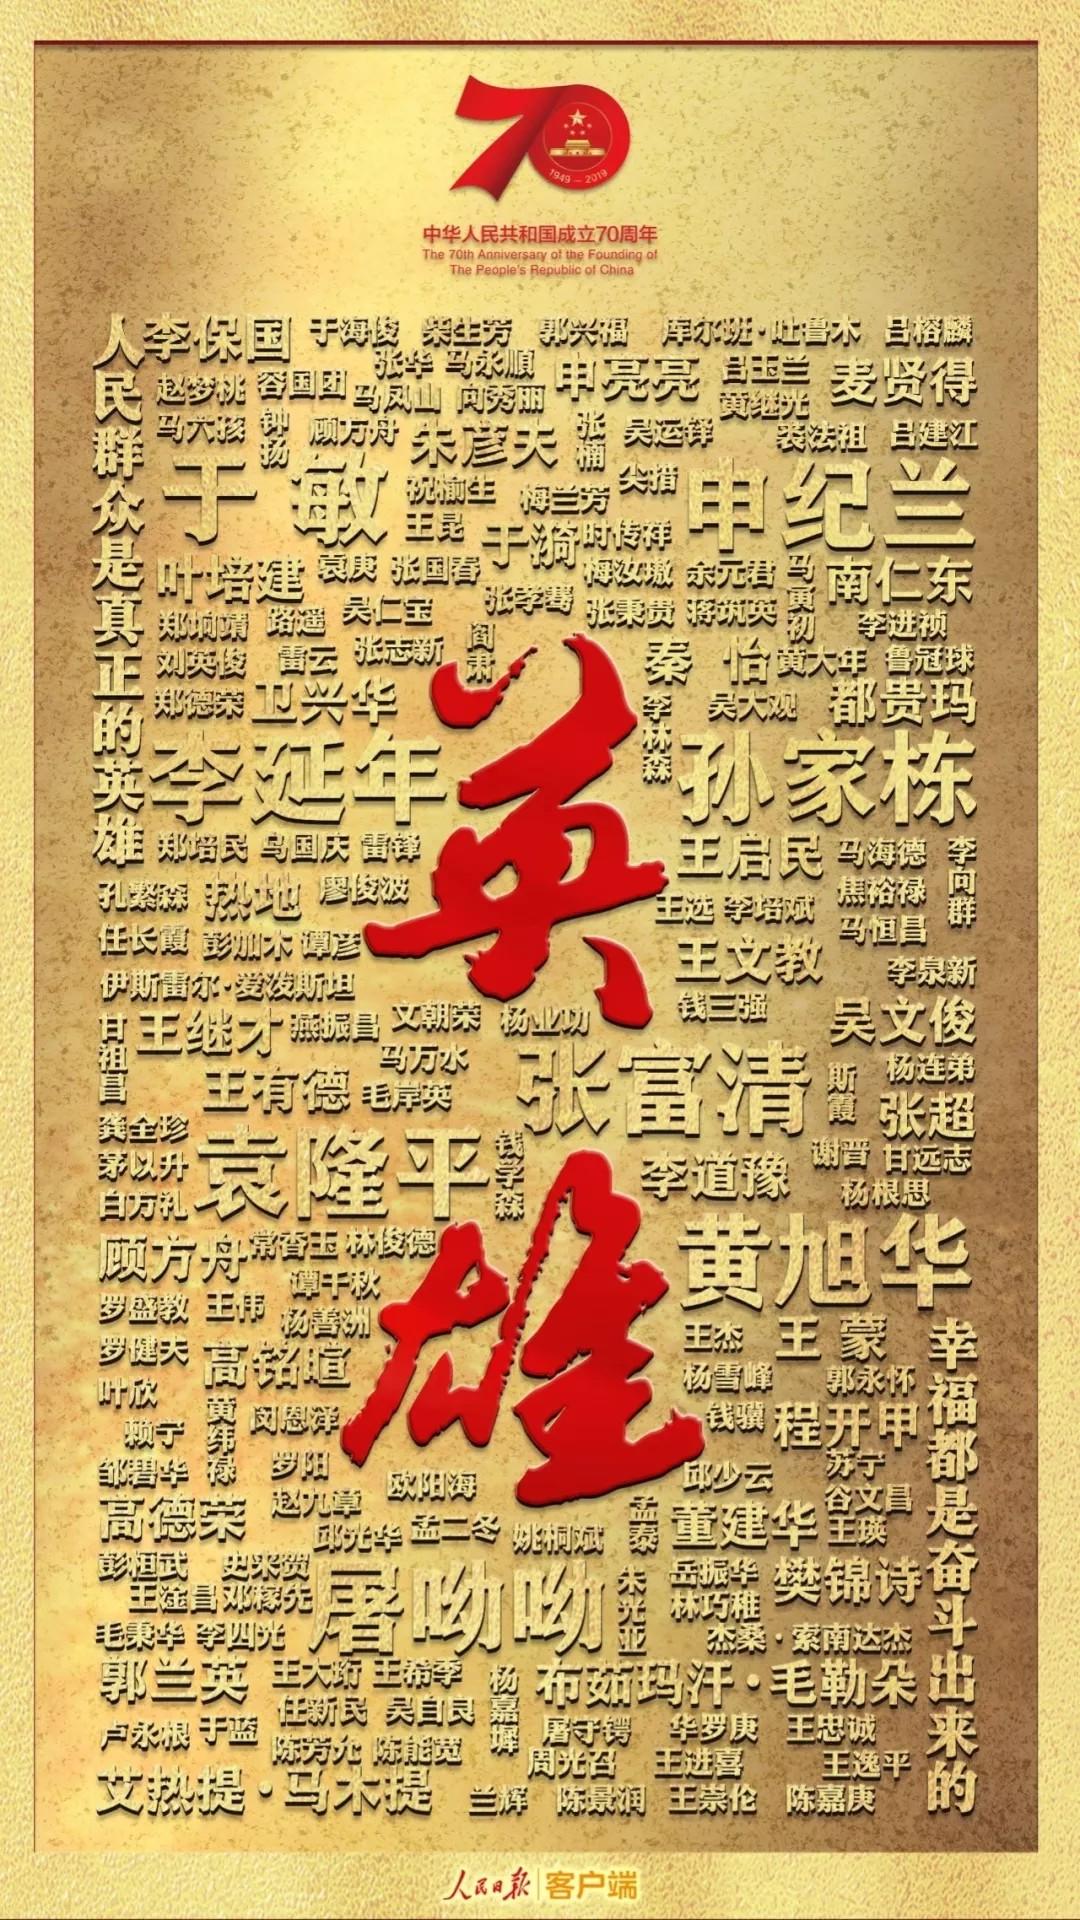 1949 — 2019
中华人民共和国成立70周年
The 70th Anniversary of the Founding of
The People's Republic of China
人民群众是真正的英雄
李保国 于海俊 柴生芳 郭兴福 库尔班·吐鲁木 吕榕麟
张华 马永顺 申亮亮 吕玉兰 麦贤得
赵梦桃 容国团 马凤山 向秀丽 黄继光
马六孩 钟扬 顾方舟 朱彦夫 张楠 吴运铎 裴法祖 吕建江
于敏 祝榆生 梅兰芳 尖措 申纪兰
王昆 于漪 时传祥
叶培建 袁庚 张国春 梅汝璈 余元君 马寅初 南仁东
郑垧靖 路遥 吴仁宝 张孝骞 张秉贵 蒋筑英 李进祯
刘英俊 雷云 张志新 阎肃 秦怡 黄大年 鲁冠球
郑德荣 卫兴华 李林森 吴大观 都贵玛
李延年 孙家栋
英雄
郑培民 乌国庆 雷锋 王启民 马海德 李向群
孔繁森 热地 廖俊波 王选 李培斌 焦裕禄
任长霞 彭加木 谭彦 王文教 马恒昌
伊斯雷尔·爱泼斯坦 李泉新
甘祖昌 王继才 燕振昌 文朝荣 杨业功 钱三强 吴文俊
马万水 张富清 斯霞 杨连弟
王有德 毛岸英 张超
龚全珍 袁隆平 钱学森 李道豫 谢晋 甘远志
茅以升 杨根思
白方礼
顾方舟 常香玉 林俊德 黄旭华
谭千秋
罗盛教 王伟 杨善洲 王杰 王蒙 幸福都是奋斗出来的
罗健夫 高铭暄 杨雪峰 郭永怀
叶欣 黄纬禄 闵恩泽 钱骥 程开甲
赖宁
邹碧华 罗阳 欧阳海 邱少云 苏宁
高德荣 赵九章 孟泰 董建华 谷文昌
邱光华 孟二冬 姚桐斌 王瑛
彭桓武 史来贺 屠呦呦 朱光亚 岳振华 樊锦诗
王淦昌 邓稼先 林巧稚
毛秉华 李四光 杰桑·索南达杰
郭兰英 王大珩 王希季 杨嘉墀 布茹玛汗·毛勒朵
任新民 吴自良
卢永根 于蓝 屠守锷 华罗庚 王忠诚
陈芳允 陈能宽 周光召 王进喜 王逸平
艾热提·马木提 兰辉 陈景润 王崇伦 陈嘉庚
人民日报 客户端